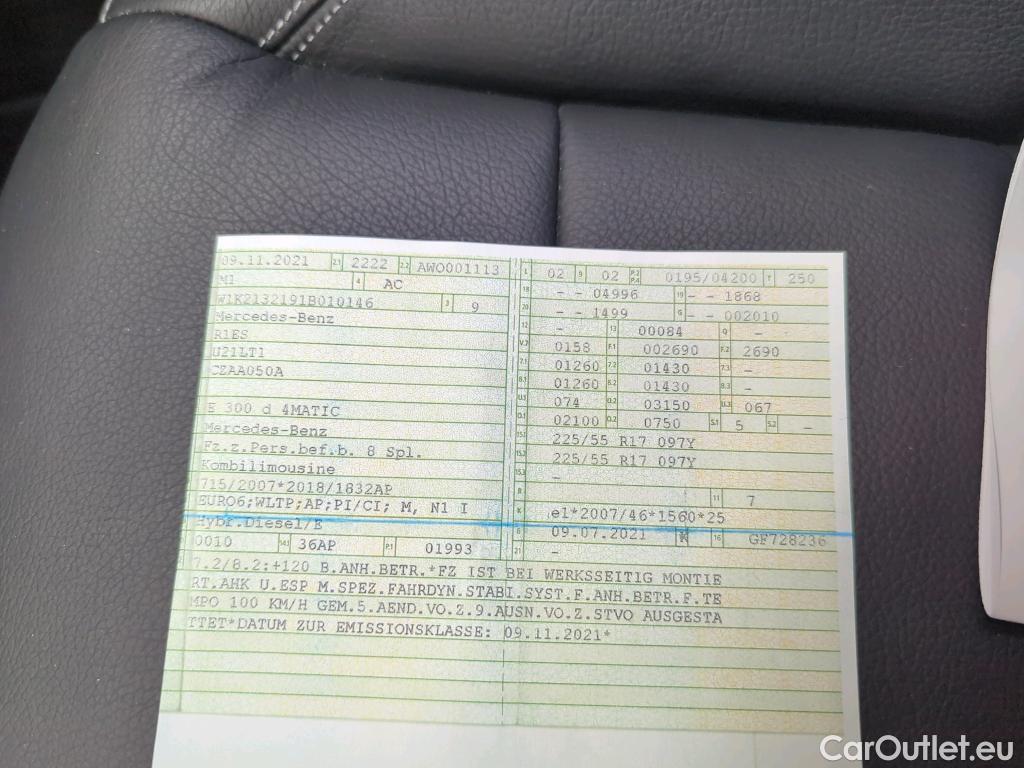 09.11.2021 2.1 2222 2.2 AWO001113
M1 4 AC
W1K2132191B010146 3 9
Mercedes-Benz
R1ES
U21LT1
CZAA050A
E 300 d 4MATIC
Mercedes-Benz
Fz.z.Pers.bef.b. 8 Spl.
Kombilimousine
715/2007*2018/1832AP
EURO6;WLTP;AP;PI/CI; M, N1 I
Hybr.Diesel/E
0010 14.1 36AP P.1 01993
L 02 9 02 P.2 P.4 0195/04200 T 250
18 - - 04996 19 - - 1868
20 - - 1499 G - - 002010
12 - 13 00084 Q -
V.7 0158 F.1 002690 F.2 2690
7.1 01260 7.2 01430 7.3 -
8.1 01260 8.2 01430 8.3 -
U.1 074 U.2 03150 U.3 067
O.1 02100 O.2 0750 S.1 5 S.2 -
15.1 225/55 R17 097Y
15.2 225/55 R17 097Y
15.3 -
R 11 7
K e1*2007/46*1560*25
6 09.07.2021 17 K 16 GF728236
21 -
7.2/8.2:+120 B.ANH.BETR.*FZ IST BEI WERKSSEITIG MONTIE
RT.AHK U.ESP M.SPEZ.FAHRDYN.STABI.SYST.F.ANH.BETR.F.TE
MPO 100 KM/H GEM.5.AEND.VO.Z.9.AUSN.VO.Z.STVO AUSGESTA
TTET*DATUM ZUR EMISSIONSKLASSE: 09.11.2021*
CarOutlet.eu